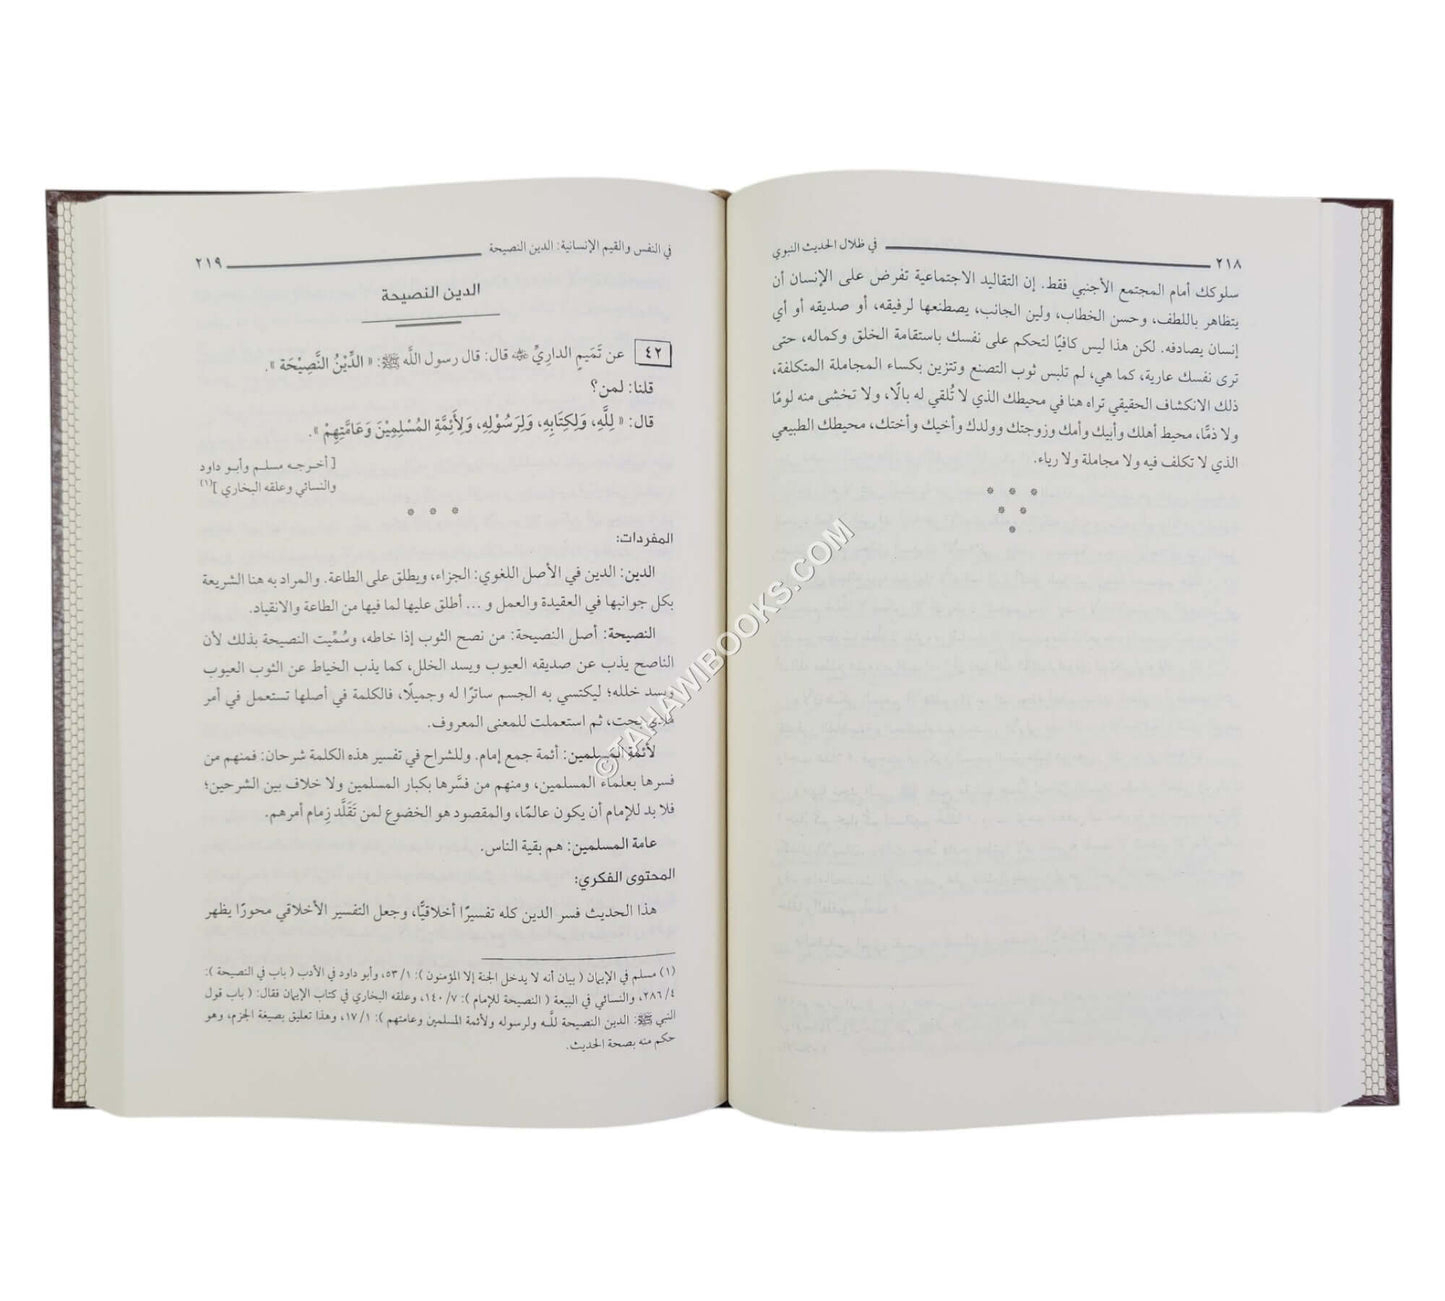 ٢١٨ في ظلال الحديث النبوي
سلوكك أمام المجتمع الأجنبي فقط. إن التقاليد الاجتماعية تفرض على الإنسان أن
يتظاهر باللطف، وحسن الخطاب، ولين الجانب، يصطنعها لرفيقه، أو صديقه أو أي
إنسان يصادفه. لكن هذا ليس كافيًا لتحكم على نفسك باستقامة الخلق وكماله، حتى
ترى نفسك عارية، كما هي، لم تلبس ثوب التصنع وتتزين بكساء المجاملة المتكلفة،
ذلك الانكشاف الحقيقي تراه هنا في محيطك الذي لا تُلقي له بالًا، ولا تخشى منه لومًا
ولا ذمًّا، محيط أهلك وأبيك وأمك وزوجتك وولدك وأخيك وأختك، محيطك الطبيعي
الذي لا تكلف فيه ولا مجاملة ولا رياء.
في النفس والقيم الإنسانية: الدين النصيحة ٢١٩
الدين النصيحة
٤٢ عن تَمَيمٍ الدارِيِّ ﷺ قال: قال رسول اللَّه ﷺ: « الدِّيْنُ النَّصِيْحَة ».
قلنا: لمن؟
قال: « لِلَّهِ، وَلِكِتَابِهِ، وَلِرَسُوْلِهِ، وَلِأَئِمَّةِ المُسْلِمِيْنَ وَعَامَّتِهِمْ ».
[ أخرجه مسلم وأبو داود
والنسائي وعلقه البخاري ](١)
المفردات:
الدين: الدين في الأصل اللغوي: الجزاء، ويطلق على الطاعة. والمراد به هنا الشريعة
بكل جوانبها في العقيدة والعمل و ... أطلق عليها لما فيها من الطاعة والانقياد.
النصيحة: أصل النصيحة: من نصح الثوب إذا خاطه، وسُمِّيت النصيحة بذلك لأن
الناصح يذب عن صديقه العيوب ويسد الخلل، كما يذب الخياط عن الثوب العيوب
ويسد خلله؛ ليكتسي به الجسم ساترًا له وجميلًا، فالكلمة في أصلها تستعمل في أمر
مادي بحت، ثم استعملت للمعنى المعروف.
لأئمة المسلمين: أئمة جمع إمام. وللشراح في تفسير هذه الكلمة شرحان: فمنهم من
فسرها بعلماء المسلمين، ومنهم من فسَّرها بكبار المسلمين ولا خلاف بين الشرحين؛
فلا بد للإمام أن يكون عالمًا، والمقصود هو الخضوع لمن تَقَلَّد زِمام أمرهم.
عامة المسلمين: هم بقية الناس.
المحتوى الفكري:
هذا الحديث فسر الدين كله تفسيرًا أخلاقيًّا، وجعل التفسير الأخلاقي محورًا يظهر
(١) مسلم في الإيمان ( بيان أنه لا يدخل الجنة إلا المؤمنون ): ٥٣/١، وأبو داود في الأدب ( باب في النصيحة ):
٢٨٦/٤، والنسائي في البيعة ( النصيحة للإمام ): ١٤٠/٧، وعلقه البخاري في كتاب الإيمان فقال: ( باب قول
النبي ﷺ: الدين النصيحة للَّه ولرسوله ولأئمة المسلمين وعامتهم ): ١٧/١، وهذا تعليق بصيغة الجزم، وهو
حكم منه بصحة الحديث.
© TAHAWIBOOKS.COM